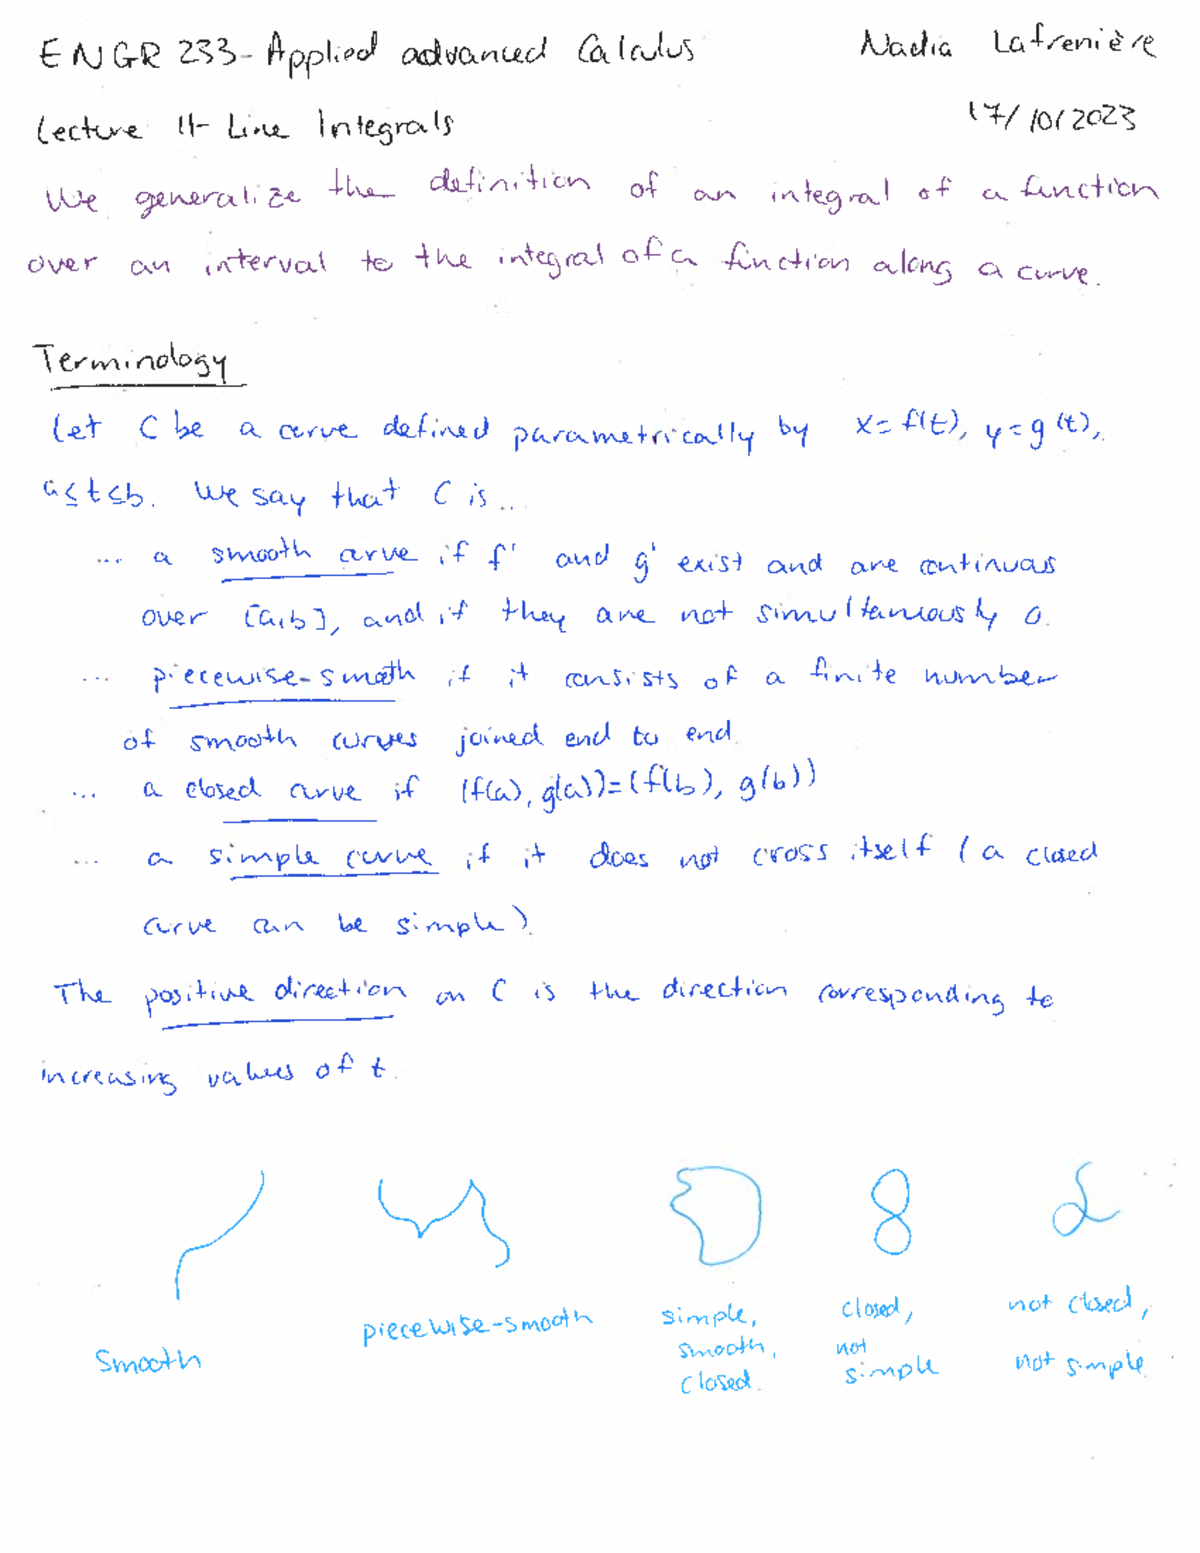 ENGR 233- Applied advanced Calculus Nadia Lafrenière
Lecture 11- Line Integrals 17/10/2023
We generalize the definition of an integral of a function
over an interval to the integral of a function along a curve.
Terminology
Let C be a curve defined parametrically by x=f(t), y=g(t),
a≤t≤b. We say that C is...
... a smooth curve if f' and g' exist and are continuous
over [a,b], and if they are not simultaneously 0.
... piecewise-smooth if it consists of a finite number
of smooth curves joined end to end.
... a closed curve if (f(a), g(a))=(f(b), g(b))
... a simple curve if it does not cross itself (a closed
curve can be simple).
The positive direction on C is the direction corresponding to
increasing values of t.
Smooth
piecewise-smooth
simple,
smooth,
closed.
closed,
not
simple
not closed,
not simple